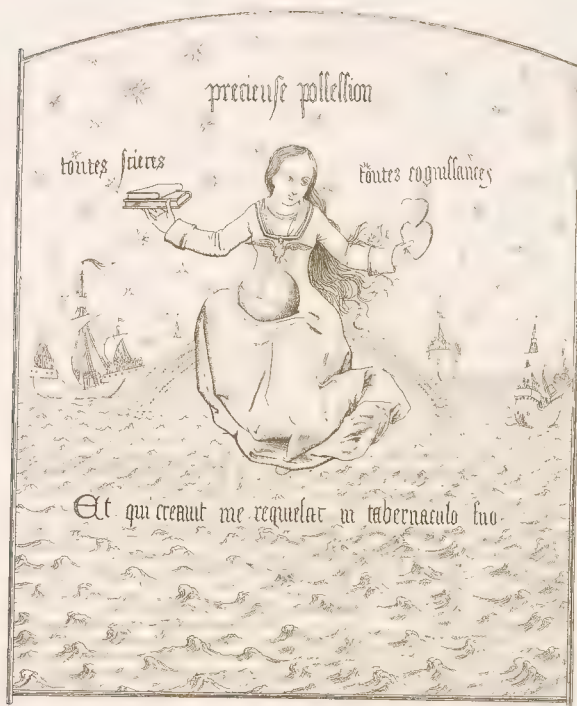 precieuse possession
toutes scieces
toutes cognissances
Et qui creauit me requieſcit in tabernaculo ſuo.